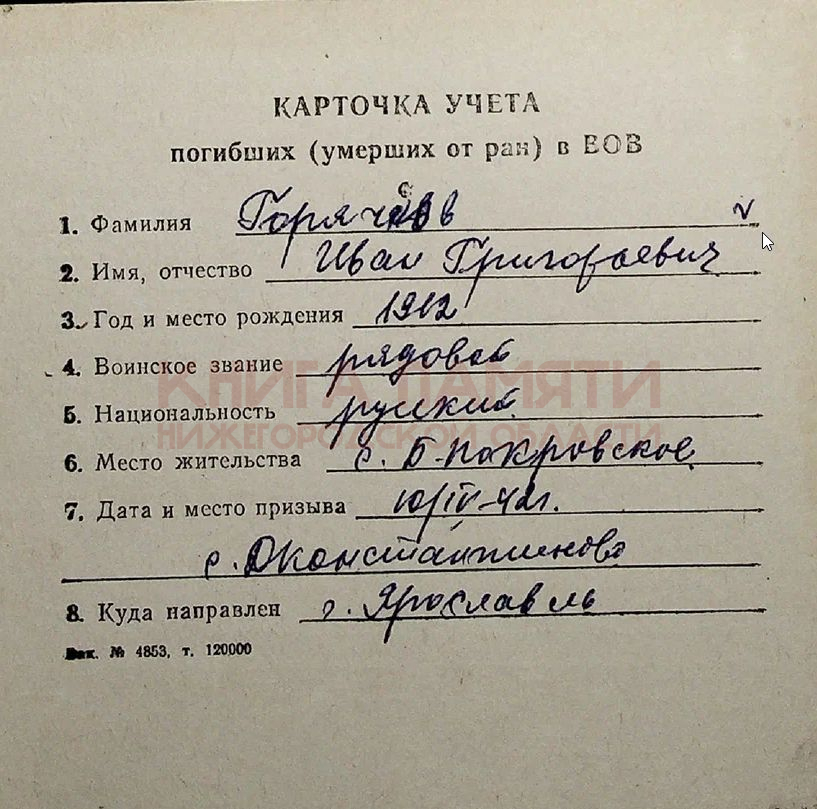 КАРТОЧКА УЧЕТА
погибших (умерших от ран) в ВОВ
1. Фамилия Горячев
2. Имя, отчество Иван Григорьевич
3. Год и место рождения 1912
4. Воинское звание рядовой
5. Национальность русский
КНИГА ПАМЯТИ
НИЖЕГОРОДСКОЙ ОБЛАСТИ
6. Место жительства с. Б-Покровское
7. Дата и место призыва 10/IV-42г.
с. Дконстантиново
8. Куда направлен г. Ярославль
Зак. № 4853, т. 120000